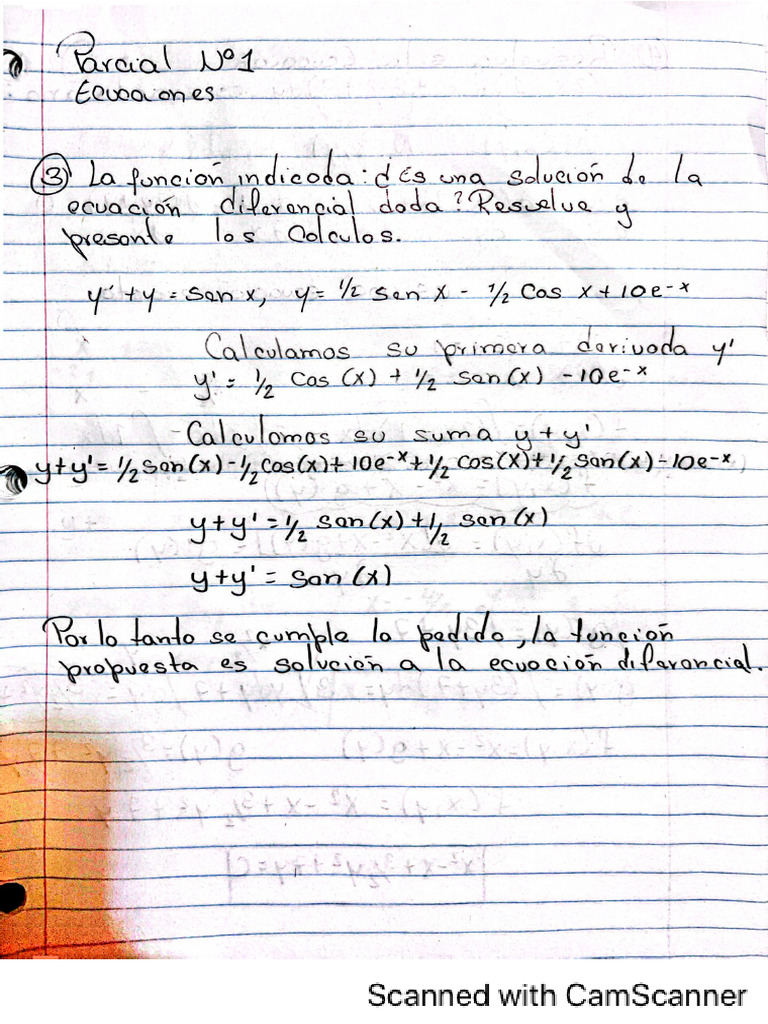 Parcial Nº1
Ecuaciones
③ La función indicada: ¿Es una solución de la
ecuación diferencial dada? Resuelve y
presente los Calculos.
y' + y = sen x, y = 1/2 sen x - 1/2 Cos x + 10e-x
Calculamos su primera derivada y'
y' = 1/2 Cos (x) + 1/2 sen (x) - 10e-x
Calculamos su suma y + y'
y+y' = 1/2 sen(x) - 1/2 cos(x) + 10e-x + 1/2 cos(x) + 1/2 sen(x) - 10e-x
y+y' = 1/2 sen(x) + 1/2 sen(x)
y+y' = sen (x)
Por lo tanto se cumple lo pedido, la función
propuesta es solución a la ecuación diferencial.
Scanned with CamScanner